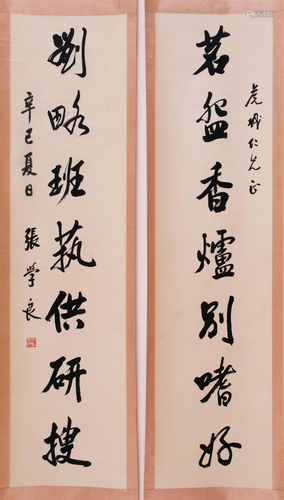 虎城仁兄正
茗盌香爐別嗜好
劉略班藝供研搜
辛巳夏日
張學良